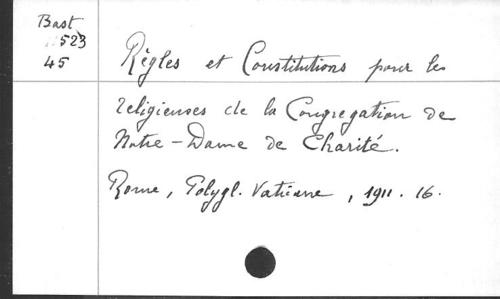 Bast
523
45
Règles et Constitutions pour les
religieuses de la Congregation de
Notre-Dame de Charité.
Rome, Polygl. Vaticane, 1911. 16.